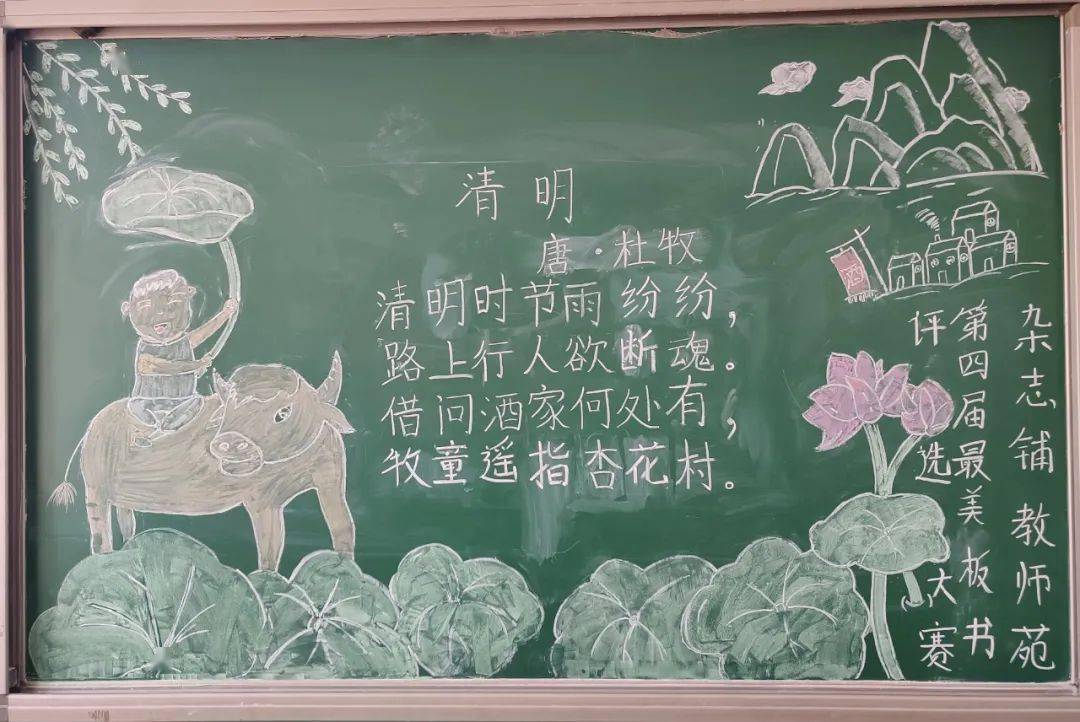 清明
唐·杜牧
清明时节雨纷纷，
路上行人欲断魂。
借问酒家何处有，
牧童遥指杏花村。
酒
杂志铺教师苑
第四届最美板书
评选大赛